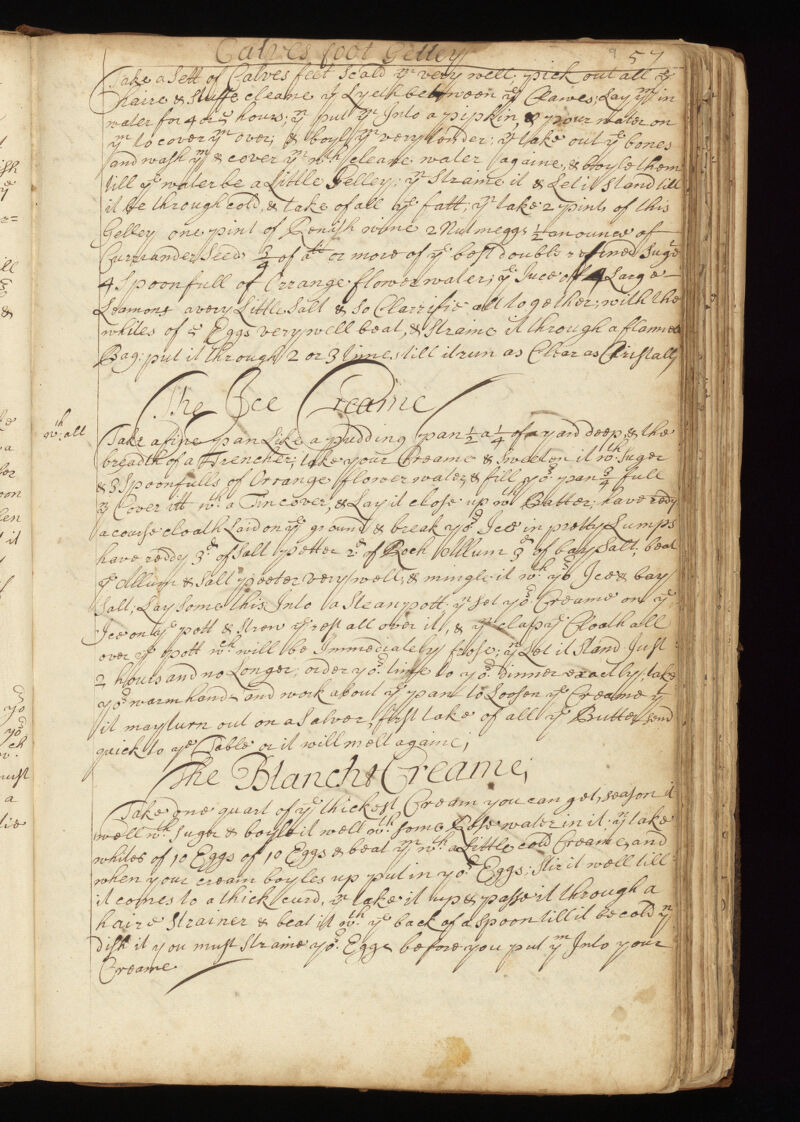 Calves foot Gelley 57
Take a Sett of Calves feet scald ym very well, pick out all ye
haire & Stuffe cleane ye Lyeth between ye Clawes; Lay ym in
water for 4 or 5 hours; yn put ym Into a pipkin & pour water on
ym to cover ym over; & boyl ym very tender; yn take out ye bones
and wash ym & cover ym wth cleane water againe, & boyle them
till ye water be a Little Gelley; yn Straine it & Let it Stand till
it be through cold, & take of all ye fatt; yn take 2 pints of this
Gelley one pint of Renish wine 2 Nutmeggs ½ an ounce of
Currianders Seed ¾ of a ll or more of ye best double refined Suger
4 Spoonfull of Orrange flower water; ye Juce of 4 Large
Leamons a very Little Salt & So Clarrifie all together; with the
whites of 5 Eggs very well beat, & Straine it through a flannell
Bag: put it through 2 or 3 times till it run as Clear as Cristall
The Ice Creame
wth all
Take a fine pan Like a pudding pan ½ a ¼ of a yard deep, & the
breadth of a Trencher; take your Creame & Sweeten it wth Suger
& 3 Spoonfulls of Orrange flower water, & fill yor pan ¾ full
yn Cover itt wth a Tin cover, & Lay it close up wth Butter; have redy
a course cloath Laid on ye ground & break yor Ice in pretty Lumps
have reddy 3d of Sall petter 2d of Roch Allum 3d of bay Salt, beat
ye Allum & Sall peeter very well, & mingle it wth yor Ice & bay
Salt; Lay Some this Into a Stean pott; yn Set yor Creame on ye
Ice on ye pott & Strew ye rest all over it, & yn clap ye Cloath all
over ye pott wch will be Immediately frose; yn Let it Stand Just
2 hours and no Longer; order yor time to yor Dinner exactly; take
yor warm hand and work about ye pan to Loosen ye Creame yt
it may turn out on a Salver, first take of all ye Butter, send
quick to ye Table or it will melt againe;
The Blanch Creame;
Take one quart of ye thickest Cream you can get, season it
well wth Suger & boyle it well wth Some Rose water in it yn take
whites of 10 Eggs of 10 Eggs & beat ym wth a Little cold Creame, and
when your cream boyles up put in yor Eggs; Stir it well till
it comes to a thick curd, yn take it up & passe it through a
haire Strainer & beat itt wth ye back of a spoon till it be cold yn
dish it you must Straine yor Eggs before you put ym Into your
Creame